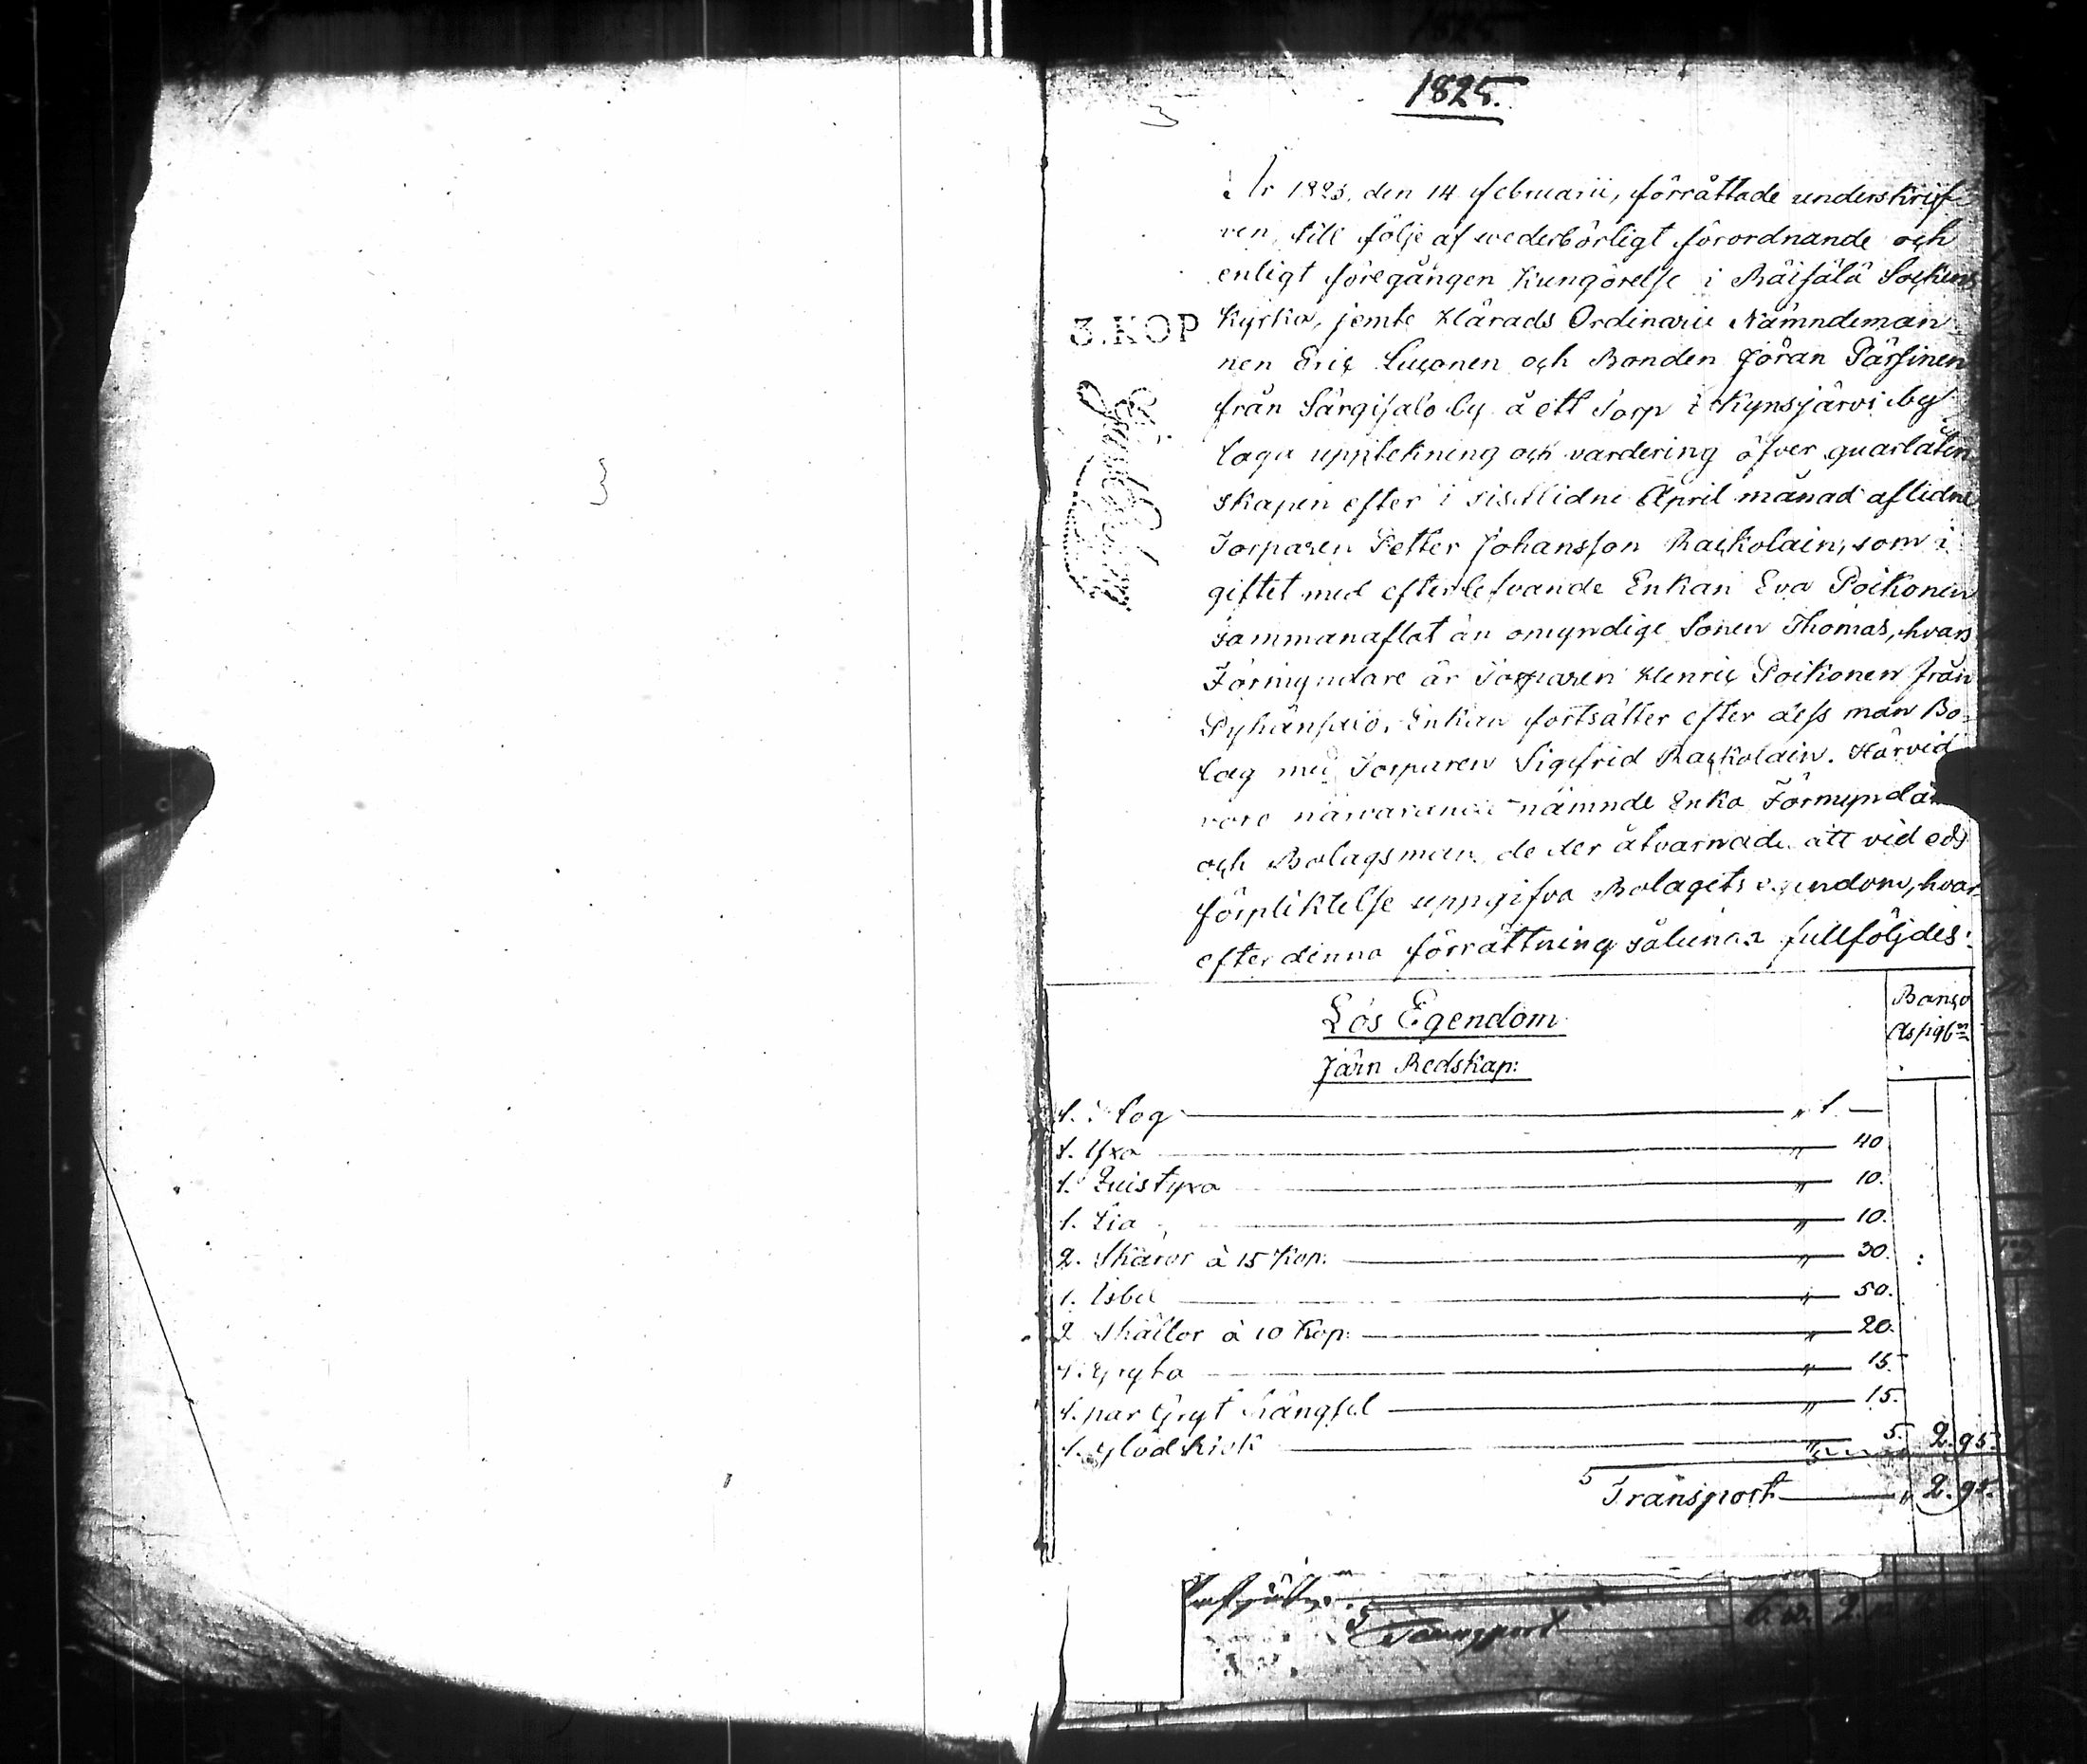 1825.
3
År 1825, den 14 februarii, förrättade underskrif-
ven, till följe af wederbörligt förordnande och
enligt föregången Kungörelse i Räisälä Sockens
3.KOP
Kyrka, jemte Härads Ordinarie Nämndeman-
nen Eric Luconen och Bonden Jöran Pärsinen
från Särgisalo by å ett Torp i Kynsjärvi by
laga upptekning och vardering öfver quarlåten-
skapen efter i sistlidne April månad aflidne
Torparen Petter Johansson Rackolain, som i
giftet med efterlefvande Enkan Eva Poikonen
sammanaflat än omyndige Sonen Thomas, hvars
Förmyndare är Torparen Henric Poikonen från
Enkan fortsätter efter dess man Bo-
lag med Torparen Sigfrid Rackolain. Härvid
voro närvarande nämnde Enka Förmyndare
och Bolagsman, de der åtvarnade att vid eds
förpliktelse uppgifva Bolagets egendom, hvar-
efter denna förrättning sålunda fullföljdes:
Lös Egendom
Banco
Assigb:n
Järn Redskap:
1. Plog " 1. —
1. Yxa " 40.
1. Quistyxa " 10.
1. Lia " 10.
2. Skäror à 15 Kop: " 30.
1. Isbil " 50.
2 Skällor à 10 Kop: " 20.
1. Gryta " 15.
1. par Gryt hängsel " 15.
1. Glödkrok " 5. 2. 95.
3
Transport " 2. 95.
Transport